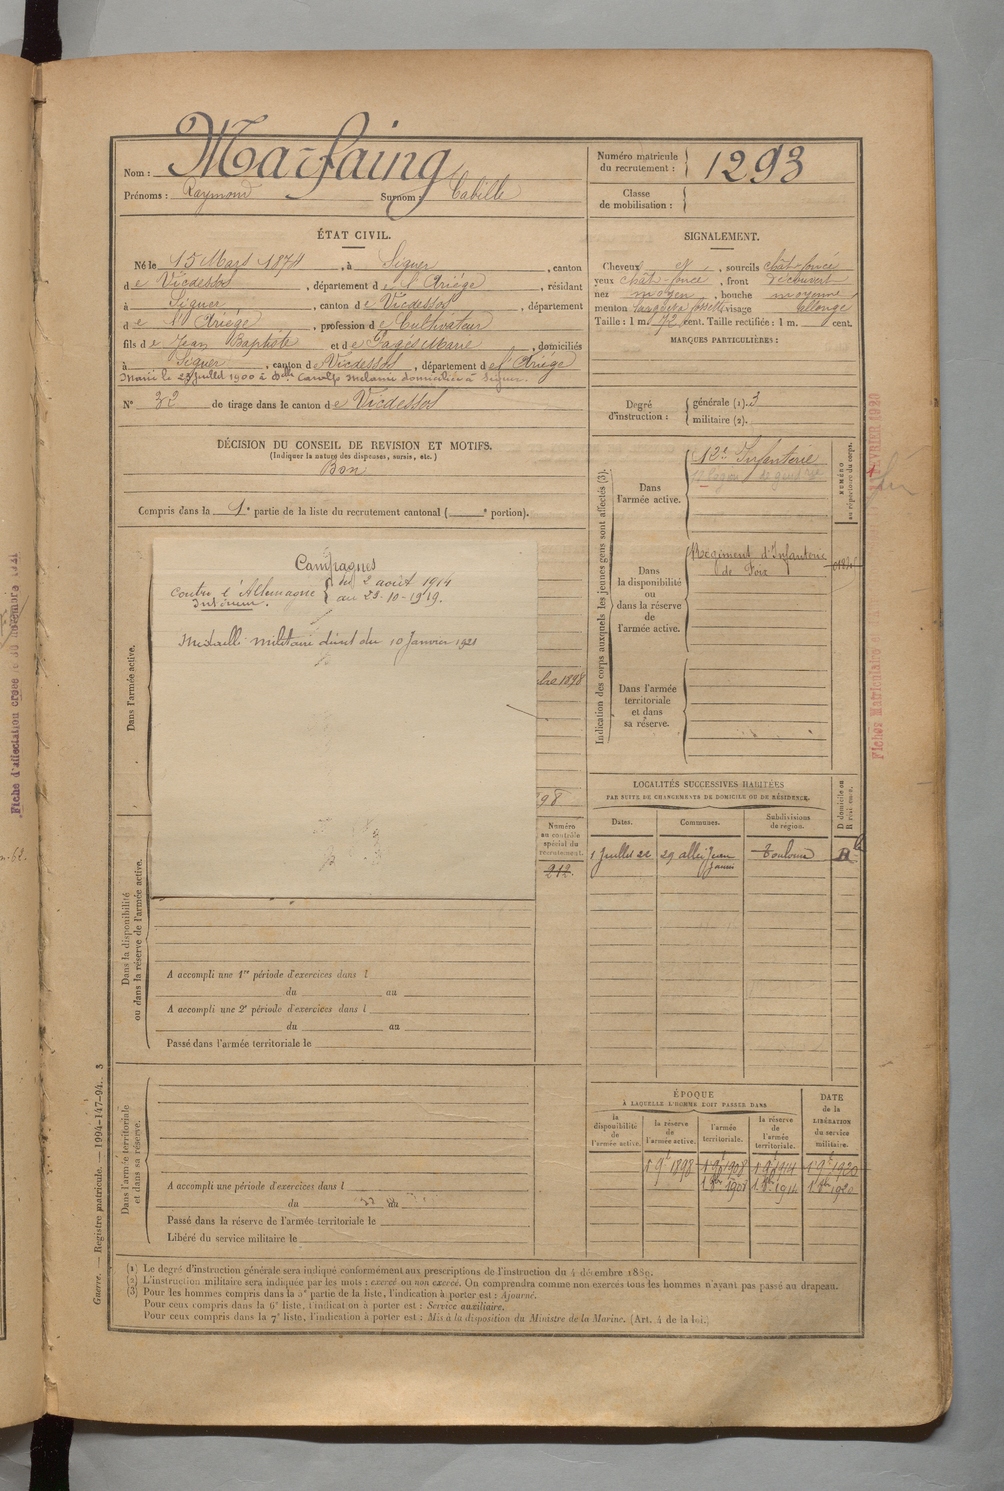 Nom : Marfaing
Prénoms : Raymond Surnom : Cabille
Numéro matricule du recrutement : 1293
Classe de mobilisation :
ÉTAT CIVIL.
Né le 15 Mars 1874, à Siguer, canton
de Vicdessos, département de l'Ariége, résidant
à Siguer, canton de Vicdessos, département
de l'Ariége, profession de Cultivateur
fils de Jean Baptiste et de Pagès Marie, domiciliés
à Siguer, canton de Vicdessos, département de l'Ariége
Marié le 23 juillet 1900 à Delle Mélanie domiciliée à Siguer.
N° 32 de tirage dans le canton de Vicdessos
SIGNALEMENT.
Cheveux et, sourcils chât-foncé
yeux chât-foncé, front découvert
nez moyen, bouche moyenne
menton fossette visage allongé
Taille : 1 m. 72 cent. Taille rectifiée : 1 m. cent.
MARQUES PARTICULIÈRES :
Degré d'instruction : générale (1). 3
militaire (2).
DÉCISION DU CONSEIL DE REVISION ET MOTIFS.
(Indiquer la nature des dispenses, sursis, etc.)
Bon
Compris dans la 1e partie de la liste du recrutement cantonal ( e portion).
Campagnes
Contre l'Allemagne du 2 août 1914
Intérieur. au 23-10-1919.
Médaille militaire décret du 10 Janvier 1921
bre 1898
98
Numéro au contrôle spécial du recrutement.
212.
Dans l'armée active.
Dans la disponibilité ou dans la réserve de l'armée active.
A accompli une 1re période d'exercices dans l
du au
A accompli une 2e période d'exercices dans l
du au
Passé dans l'armée territoriale le
Dans l'armée territoriale et dans sa réserve.
A accompli une période d'exercices dans l
du au
Passé dans la réserve de l'armée territoriale le
Libéré du service militaire le
Indication des corps auxquels les jeunes gens sont affectés (3).
NUMÉRO au répertoire du corps.
Dans l'armée active.
12e Infanterie
Dans la disponibilité ou dans la réserve de l'armée active.
Régiment d'Infanterie
de Foix
Dans l'armée territoriale et dans sa réserve.
LOCALITÉS SUCCESSIVES HABITÉES
PAR SUITE DE CHANGEMENTS DE DOMICILE OU DE RÉSIDENCE.
Dates. Communes. Subdivisions de région. D domicile ou R résidence.
1 Juillet 22 29 allée Jean Jaurès Toulouse R
ÉPOQUE
À LAQUELLE L'HOMME DOIT PASSER DANS
la disponibilité de l'armée active.
la réserve de l'armée active.
l'armée territoriale.
la réserve de l'armée territoriale.
DATE de la LIBÉRATION du service militaire.
1 9e 1898 1 9e 1908 1 9e 1914 1 9e 1920
1 8bre 1908 1 8bre 1914 1 8bre 1920
(1) Le degré d'instruction générale sera indiqué conformément aux prescriptions de l'instruction du 4 décembre 1889.
(2) L'instruction militaire sera indiquée par les mots : exercé ou non exercé. On comprendra comme non exercés tous les hommes n'ayant pas passé au drapeau.
(3) Pour les hommes compris dans la 5e partie de la liste, l'indication à porter est : Ajourné.
Pour ceux compris dans la 6e liste, l'indication à porter est : Service auxiliaire.
Pour ceux compris dans la 7e liste, l'indication à porter est : Mis à la disposition du Ministre de la Marine. (Art. 4 de la loi.)
Guerre. — Registre matricule. — 1994-147-94. 3
Fiche d'affectation créée le novembre 1921
Fiches Matriculaire et FÉVRIER 1920